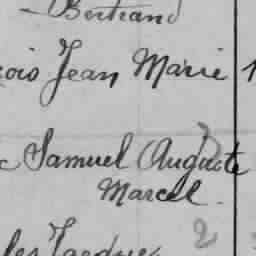 Bertrand
çois Jean Marie 1
c Samuel Auguste
Marcel
2
les Tardue